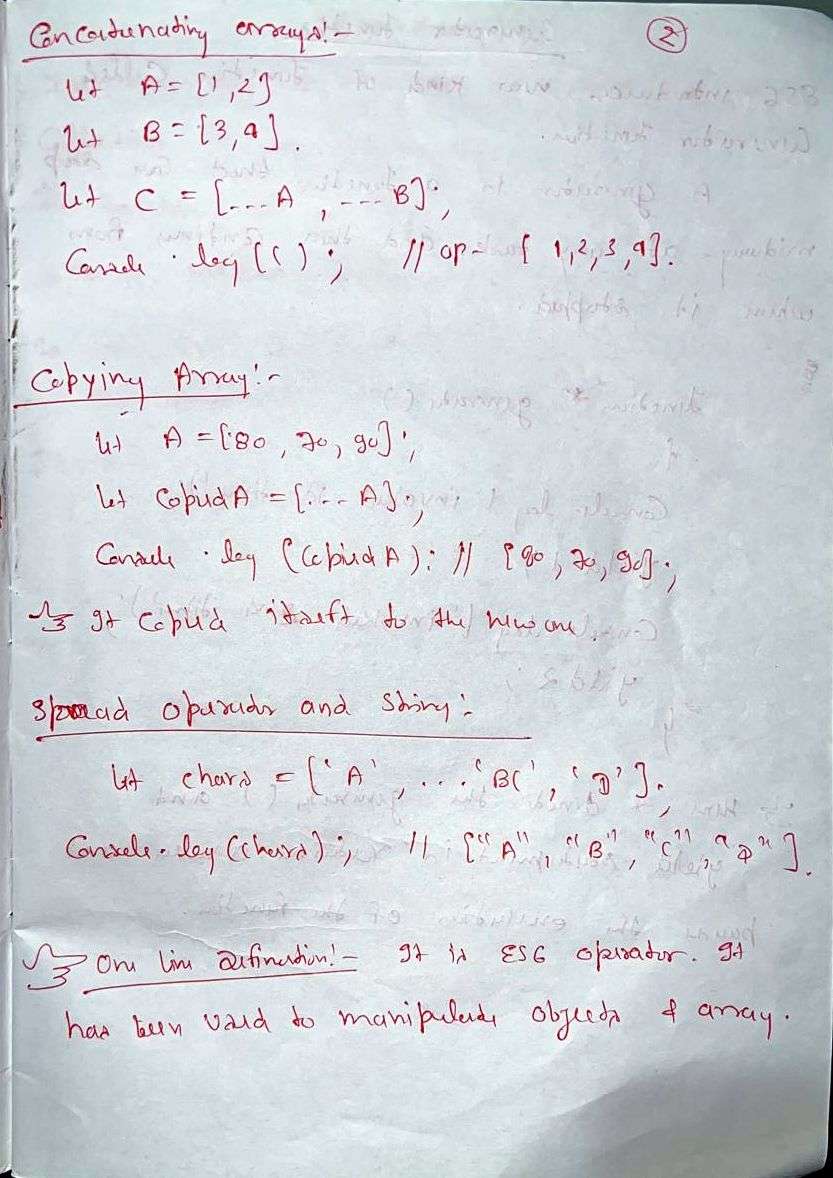 Concatenating arrays:-
2
let A = [1,2]
let B = [3,4].
let C = [...A , ...B];
Console.log(C); // op- [1,2,3,4].
Copying Array:-
let A = [80, 70, 90];
let CopiedA = [...A];
Console.log (CopiedA); // [80, 70, 90];
It copied itself to the new one.
Spread operator and string:-
let chars = ['A', ...'BC', 'D'];
Console.log(chars); // ["A", "B", "C", "D"].
One line Defination:- It is ES6 operator. It
has been used to manipulate objects & array.